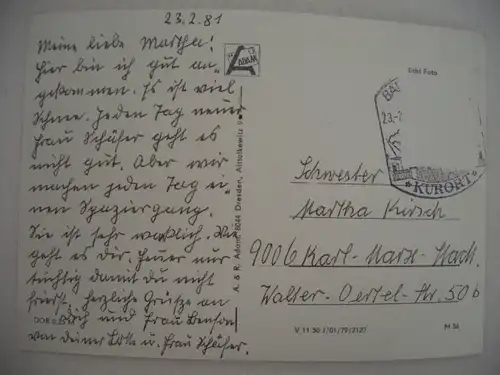 23.2.81
Meine liebe Martha!
Hier bin ich gut an-
gekommen. Es ist viel
Schnee. Jeden Tag neuer
Frau Schäfer geht es
nicht gut. Aber wir
machen jeden Tag ei-
nen Spaziergang.
Sie ist sehr wacklich. Wie
geht es dir. Feuer nur
tüchtig damit du nicht
frierst. Herzliche Grüsse an
dich und Frau
von deiner Lotte u. Frau Schäfer.
ADAM
A. & R. Adam, 8044 Dresden, Altlolkewitz
DDR
Echt Foto
BA
23.-2
*KURORT*
Schwester
Martha Kirsch
9006 Karl-Marx-Stadt
Walter-Oertel-Str. 50b
V 11 50 J/01/79/2127
M 36